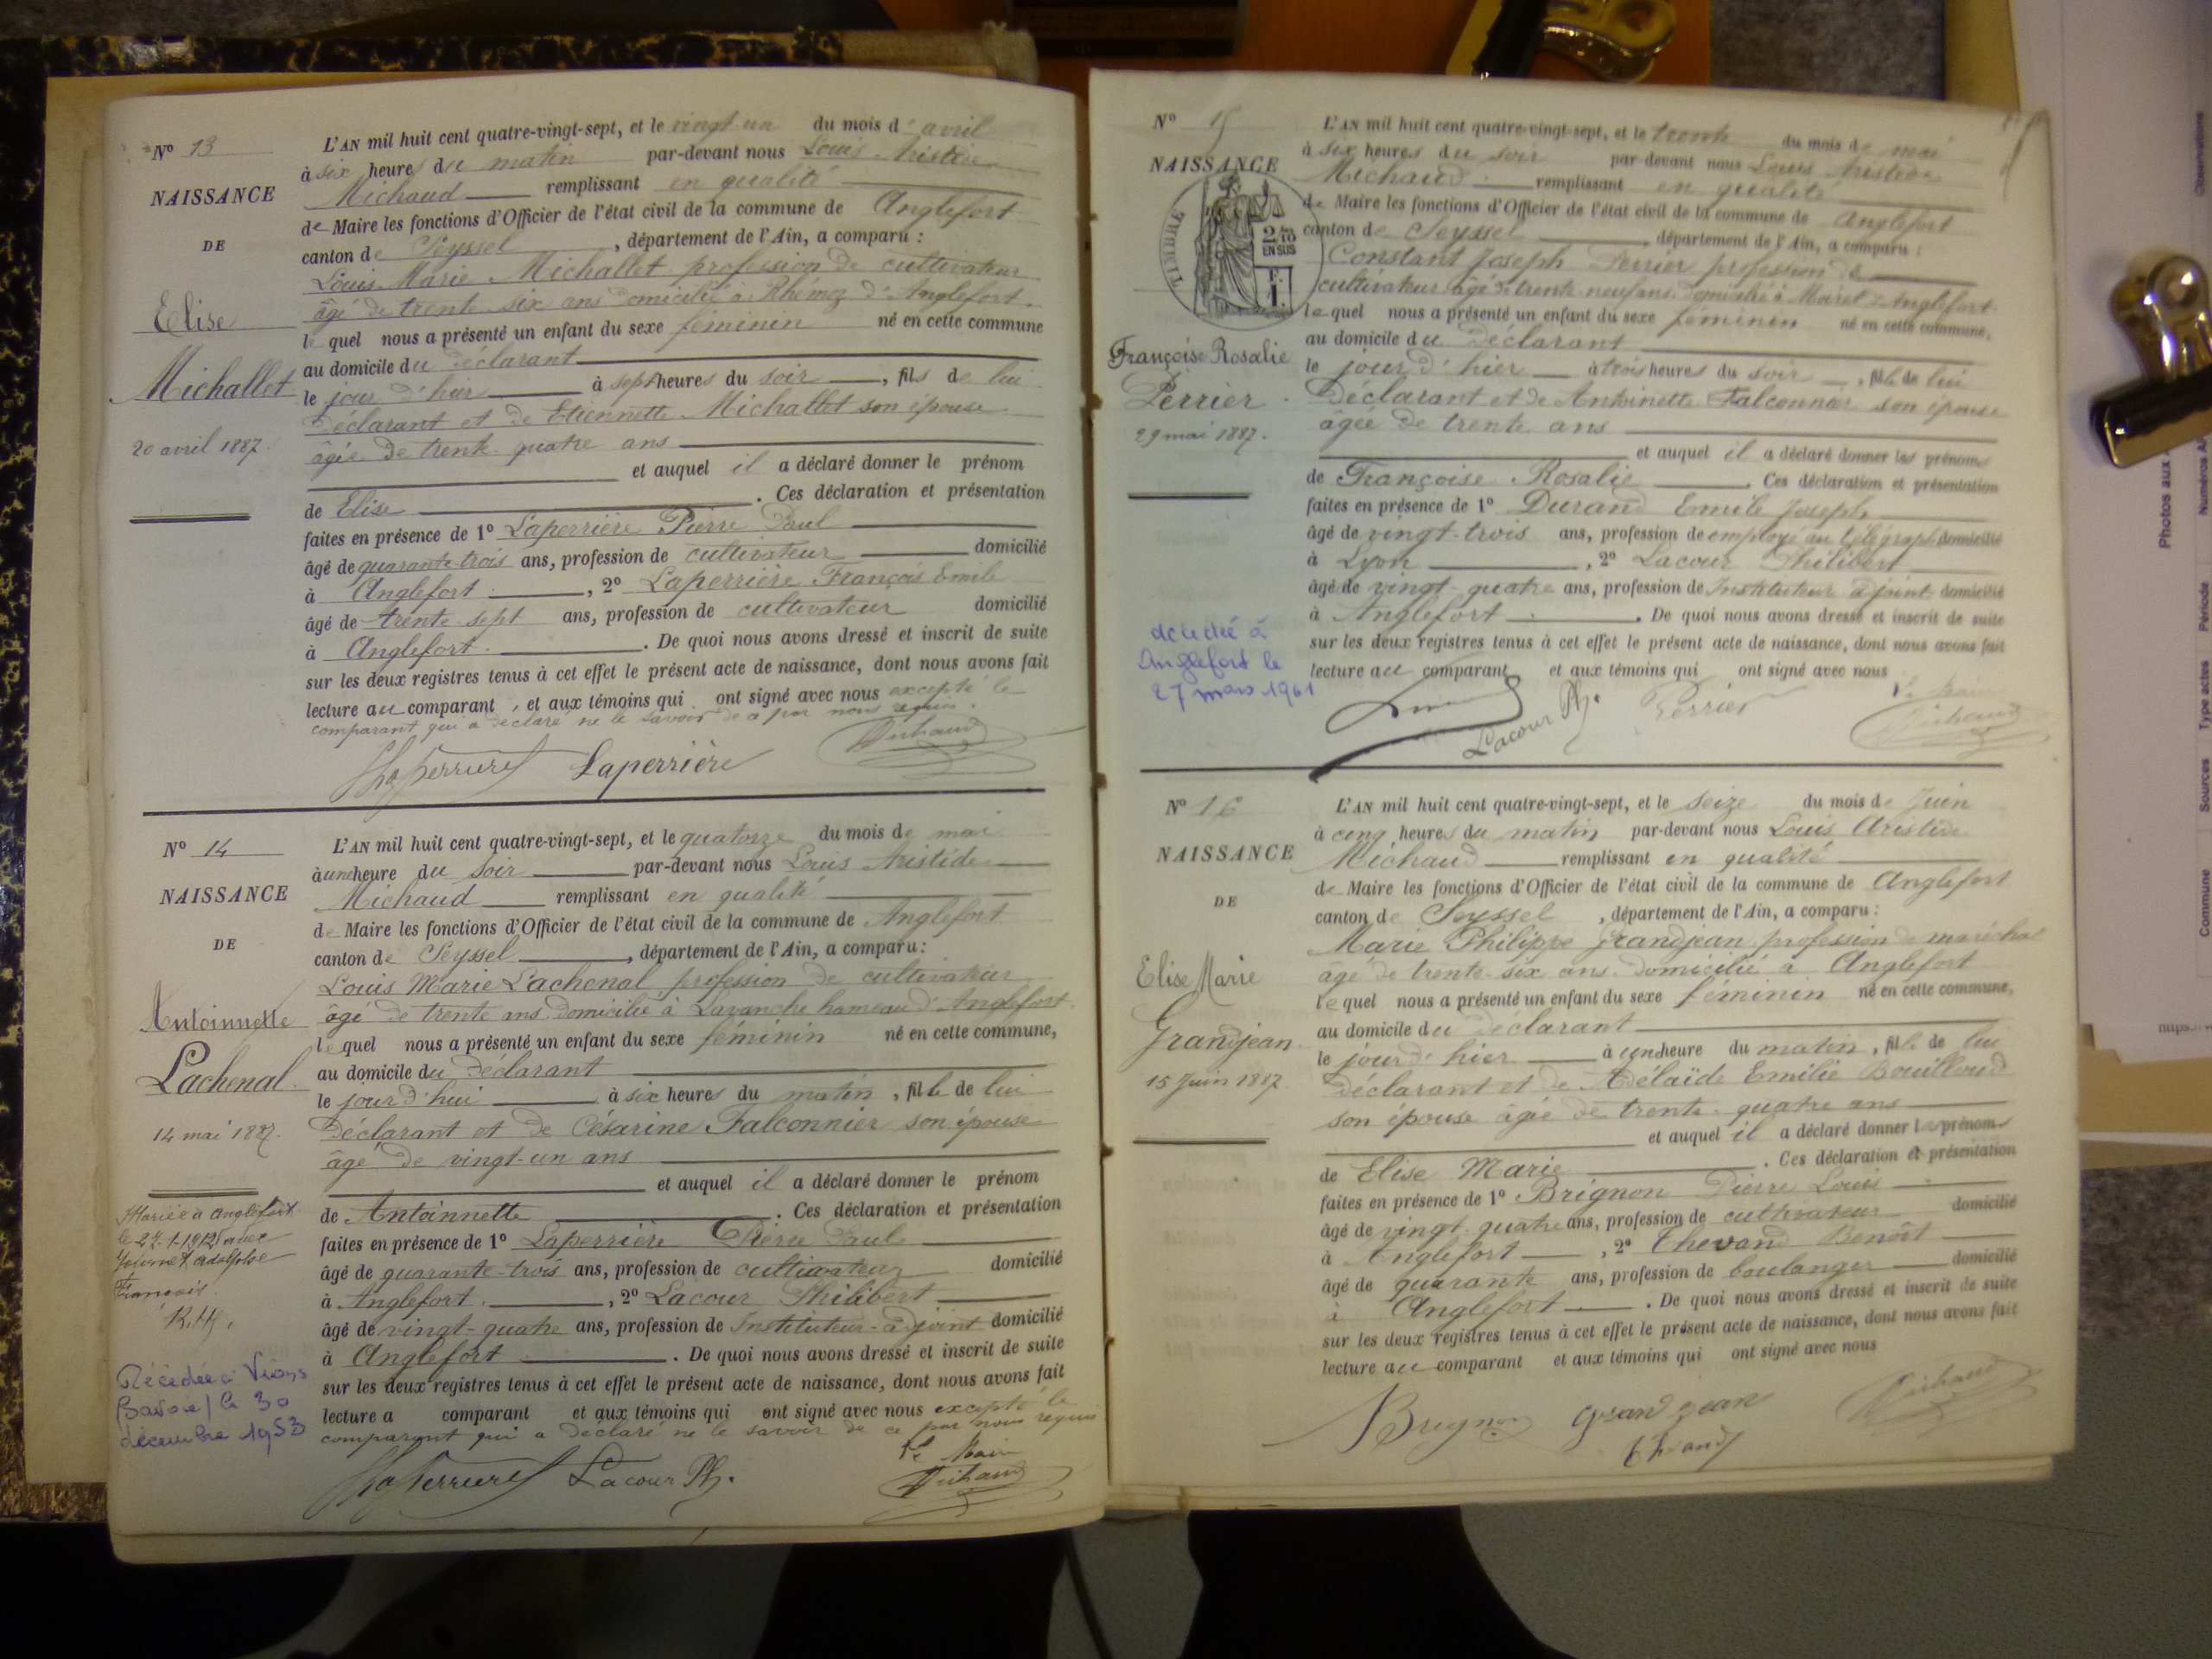 Nº 13
NAISSANCE
DE
Elise
Michallet
20 avril 1887.
L'AN mil huit cent quatre-vingt-sept, et le vingt-un du mois d'avril
à six heures du matin par-devant nous Louis Aristide
Michaud remplissant en qualité
de Maire les fonctions d'Officier de l'état civil de la commune de Anglefort
canton de Seyssel, département de l'Ain, a comparu :
Louis Marie Michallet profession de cultivateur
âgé de trente-six ans domicilié à Rhémoz d'Anglefort.
lequel nous a présenté un enfant du sexe féminin né en cette commune
au domicile du déclarant
le jour d'hier à sept heures du soir, fils de lui
déclarant et de Etiennette Michallet son épouse
âgée de trente-quatre ans
et auquel il a déclaré donner le prénom
de Elise. Ces déclaration et présentation
faites en présence de 1º Laperrière Pierre Paul
âgé de quarante-trois ans, profession de cultivateur domicilié
à Anglefort, 2º Laperrière François Emile
âgé de trente-sept ans, profession de cultivateur domicilié
à Anglefort. De quoi nous avons dressé et inscrit de suite
sur les deux registres tenus à cet effet le présent acte de naissance, dont nous avons fait
lecture au comparant, et aux témoins qui ont signé avec nous excepté le
comparant qui a déclaré ne le savoir de a par nous requis.
Laperrière Michaud
Nº 14
NAISSANCE
DE
Antoinnette
Lachenal
14 mai 1887.
Mariée à Anglefort
le 27-1-1912 avec
Adolphe
François.
Décédée à Vions
(Savoie) le 30
décembre 1953
L'AN mil huit cent quatre-vingt-sept, et le quatorze du mois de mai
à une heure du soir par-devant nous Louis Aristide
Michaud remplissant en qualité
de Maire les fonctions d'Officier de l'état civil de la commune de Anglefort
canton de Seyssel, département de l'Ain, a comparu :
Louis Marie Lachenal profession de cultivateur
âgé de trente ans domicilié à Lavanche hameau d'Anglefort.
lequel nous a présenté un enfant du sexe féminin né en cette commune,
au domicile du déclarant
le jour d'hui à six heures du matin, fille de lui
déclarant et de Césarine Falconnier son épouse
âgé de vingt-un ans
et auquel il a déclaré donner le prénom
de Antoinnette. Ces déclaration et présentation
faites en présence de 1º Laperrière Pierre Paul
âgé de quarante-trois ans, profession de cultivateur domicilié
à Anglefort, 2º Lacour Philibert
âgé de vingt-quatre ans, profession de Instituteur-adjoint domicilié
à Anglefort. De quoi nous avons dressé et inscrit de suite
sur les deux registres tenus à cet effet le présent acte de naissance, dont nous avons fait
lecture a comparant et aux témoins qui ont signé avec nous excepté le
comparant qui a déclaré ne le savoir de ce par nous requis
Lacour Ph. Le Maire
Michaud
Nº 15
NAISSANCE
TIMBRE
2/10
EN SUS
F.
1.
Françoise Rosalie
Perrier
29 mai 1887.
décédée à
Anglefort le
27 mars 1961
L'AN mil huit cent quatre-vingt-sept, et le trente du mois de mai
à six heures du soir par-devant nous Louis Aristide
Michaud remplissant en qualité
de Maire les fonctions d'Officier de l'état civil de la commune de Anglefort
canton de Seyssel, département de l'Ain, a comparu :
Constant Joseph Perrier profession de
cultivateur âgé de trente-neuf ans domicilié à Mairet d'Anglefort
lequel nous a présenté un enfant du sexe féminin né en cette commune,
au domicile du déclarant
le jour d'hier à trois heures du soir, fille de lui
déclarant et de Antoinette Falconnier son épouse
âgée de trente ans
et auquel il a déclaré donner les prénoms
de Françoise Rosalie. Ces déclaration et présentation
faites en présence de 1º Durand Emile Joseph
âgé de vingt-trois ans, profession de employé au télégraphe domicilié
à Lyon, 2º Lacour Philibert
âgé de vingt-quatre ans, profession de Instituteur adjoint domicilié
à Anglefort. De quoi nous avons dressé et inscrit de suite
sur les deux registres tenus à cet effet le présent acte de naissance, dont nous avons fait
lecture au comparant et aux témoins qui ont signé avec nous
Lacour Ph. Perrier Michaud
Nº 16
NAISSANCE
DE
Elise Marie
Grandjean
15 Juin 1887
L'AN mil huit cent quatre-vingt-sept, et le seize du mois de Juin
à cinq heures du matin par-devant nous Louis Aristide
Michaud remplissant en qualité
de Maire les fonctions d'Officier de l'état civil de la commune de Anglefort
canton de Seyssel, département de l'Ain, a comparu :
Marie Philippe Grandjean profession de maréchal
âgé de trente-six ans domicilié à Anglefort
lequel nous a présenté un enfant du sexe féminin né en cette commune,
au domicile du déclarant
le jour d'hier à une heure du matin, fille de lui
déclarant et de Adélaïde Emilie Bouilloud
son épouse âgée de trente-quatre ans
et auquel il a déclaré donner les prénoms
de Elise Marie. Ces déclaration et présentation
faites en présence de 1º Brignon Pierre Louis
âgé de vingt-quatre ans, profession de cultivateur domicilié
à Anglefort, 2º Thevand Benoît
âgé de quarante ans, profession de boulanger domicilié
à Anglefort. De quoi nous avons dressé et inscrit de suite
sur les deux registres tenus à cet effet le présent acte de naissance, dont nous avons fait
lecture au comparant et aux témoins qui ont signé avec nous
Brignon Grandjean Michaud
Commune Sources Type actes Période Photos aux Observations